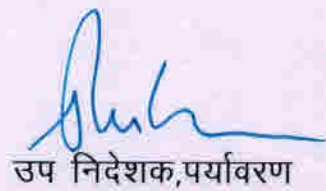 उप निदेशक,पर्यावरण